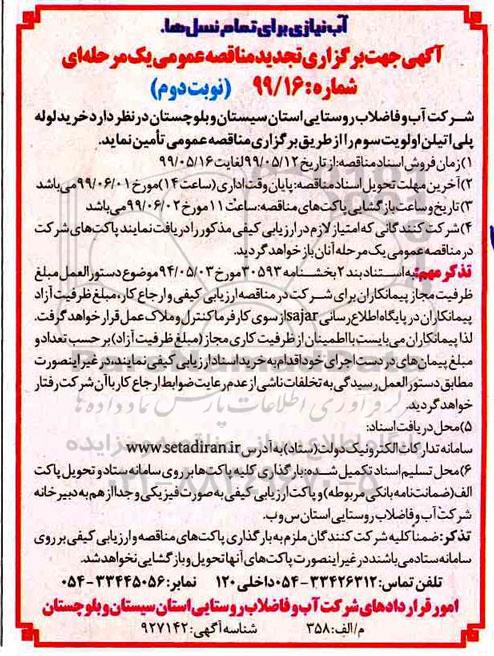 آب نیازی برای تمام نسل ها.
آگهی جهت برگزاری تجدید مناقصه عمومی یک مرحله ای
شماره: ۹۹/۱۶ (نوبت دوم)
شرکت آب و فاضلاب روستایی استان سیستان و بلوچستان در نظر دارد خرید لوله
پلی اتیلن اولویت سوم را از طریق برگزاری مناقصه عمومی تأمین نماید.
۱) زمان فروش اسناد مناقصه: از تاریخ ۹۹/۰۵/۱۲ لغایت ۹۹/۰۵/۱۶
۲) آخرین مهلت تحویل اسناد مناقصه: پایان وقت اداری (ساعت ۱۴) مورخ ۹۹/۰۶/۰۱ می باشد
۳) تاریخ و ساعت بازگشایی پاکت های مناقصه: ساعت ۱۱ مورخ ۹۹/۰۶/۰۲ می باشد
۴) شرکت کنندگانی که امتیاز لازم در ارزیابی کیفی مذکور را دریافت نمایند پاکت های شرکت
در مناقصه عمومی یک مرحله آنان باز خواهد گردید.
تذکر مهم: به استناد بند ۲ بخشنامه ۳۰۵۹۳ مورخ ۹۴/۰۵/۰۳ موضوع دستورالعمل مبلغ
ظرفیت مجاز پیمانکاران برای شرکت در مناقصه ارزیابی کیفی و ارجاع کار، مبلغ ظرفیت آزاد
پیمانکاران در پایگاه اطلاع رسانی sajar از سوی کارفرما کنترل و ملاک عمل قرار خواهد گرفت.
لذا پیمانکاران می بایست با اطمینان از ظرفیت کاری مجاز (مبلغ ظرفیت آزاد) بر حسب تعداد و
مبلغ پیمان های در دست اجرای خود اقدام به خرید اسناد ارزیابی کیفی نمایند. در غیر اینصورت
مطابق دستورالعمل رسیدگی به تخلفات ناشی از عدم رعایت ضوابط ارجاع کار با آن شرکت رفتار
خواهد گردید.
۵) محل دریافت اسناد:
سامانه تدارکات الکترونیک دولت (ستاد) به آدرس www.setadiran.ir
۶) محل تسلیم اسناد تکمیل شده: بارگذاری کلیه پاکت ها بر روی سامانه ستاد و تحویل پاکت
الف (ضمانت نامه بانکی مربوطه) و پاکت ارزیابی کیفی به صورت فیزیکی و جدا از هم به دبیرخانه
شرکت آب و فاضلاب روستایی استان س و ب.
تذکر: ضمناً کلیه شرکت کنندگان ملزم به بارگذاری پاکت های مناقصه و ارزیابی کیفی بر روی
سامانه ستاد می باشند در غیر اینصورت پاکت های آنها تحویل و بازگشایی نخواهد شد.
تلفن تماس: ۳۳۴۲۶۳۱۲-۰۵۴ داخلی ۱۲۰ نمابر: ۳۳۴۴۵۰۵۶-۰۵۴
امور قراردادهای شرکت آب و فاضلاب روستایی استان سیستان و بلوچستان
م/الف: ۳۵۸ شناسه آگهی: ۹۲۷۱۴۲